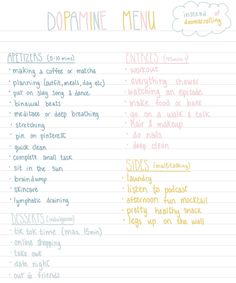 DOPAMINE MENU
instead of
doomscrolling
APETIZERS (5-10 mins)
• making a coffee or matcha
• planning (outfit, meals, day etc)
• put on slay song & dance
• binaural beats
• meditate or deep breathing
• stretching
• pin on pinterest
• quick clean
• complete small task
• sit in the sun
• braindump
• skincare
• lymphatic draining
DESSERTS (indulgences)
• tik tok time (max 15min)
• online shopping
• take out
• date night
• out c friends
ENTREES
• workout
• everything shower
• watching an episode
• make food or bake
• go on a walk & talk
• Hair & makeup
• do nails
• deep clean
SIDES (multitasking)
• laundry
• listen to podcast
• afternoon fun mocktail
• pretty healthy snack
• legs up on the wall